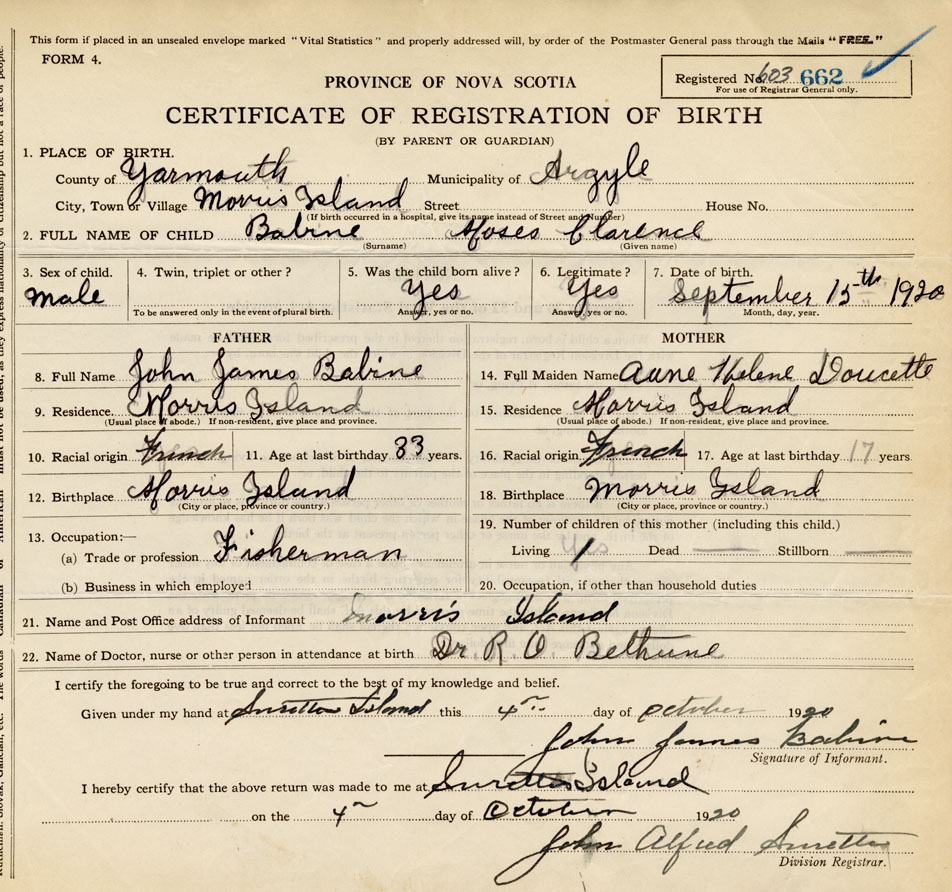 This form if placed in an unsealed envelope marked "Vital Statistics" and properly addressed will, by order of the Postmaster General pass through the Mails "FREE."
FORM 4.
Registered No. 603 662
For use of Registrar General only.
PROVINCE OF NOVA SCOTIA
CERTIFICATE OF REGISTRATION OF BIRTH
(BY PARENT OR GUARDIAN)
1. PLACE OF BIRTH.
County of Yarmouth Municipality of Argyle
City, Town or Village Morris Island Street House No.
(If birth occurred in a hospital, give its name instead of Street and Number)
2. FULL NAME OF CHILD Babine Moses Clarence
(Surname) (Given name)
3. Sex of child. 4. Twin, triplet or other? 5. Was the child born alive? 6. Legitimate? 7. Date of birth.
male Yes Yes September 15th 1920
To be answered only in the event of plural birth. Answer, yes or no. Answer, yes or no. Month, day, year.
FATHER MOTHER
8. Full Name John James Babine 14. Full Maiden Name Anne Helene Doucette
9. Residence. Morris Island 15. Residence Morris Island
(Usual place of abode.) If non-resident, give place and province. (Usual place of abode.) If non-resident, give place and province.
10. Racial origin French 11. Age at last birthday 33 years. 16. Racial origin French 17. Age at last birthday 17 years
12. Birthplace Morris Island 18. Birthplace Morris Island
(City or place, province or country.) (City or place, province or country.)
13. Occupation:— 19. Number of children of this mother (including this child.)
(a) Trade or profession Fisherman Living 1 Dead — Stillborn —
(b) Business in which employed 20. Occupation, if other than household duties
21. Name and Post Office address of Informant morris Island
22. Name of Doctor, nurse or other person in attendance at birth Dr. R. O. Bethune
I certify the foregoing to be true and correct to the best of my knowledge and belief.
Given under my hand at Surettes Island this 4 day of october 1920
John James Babine
Signature of Informant.
I hereby certify that the above return was made to me at Surettes Island
on the 4 day of October 1920
John Alfred Surette
Division Registrar.